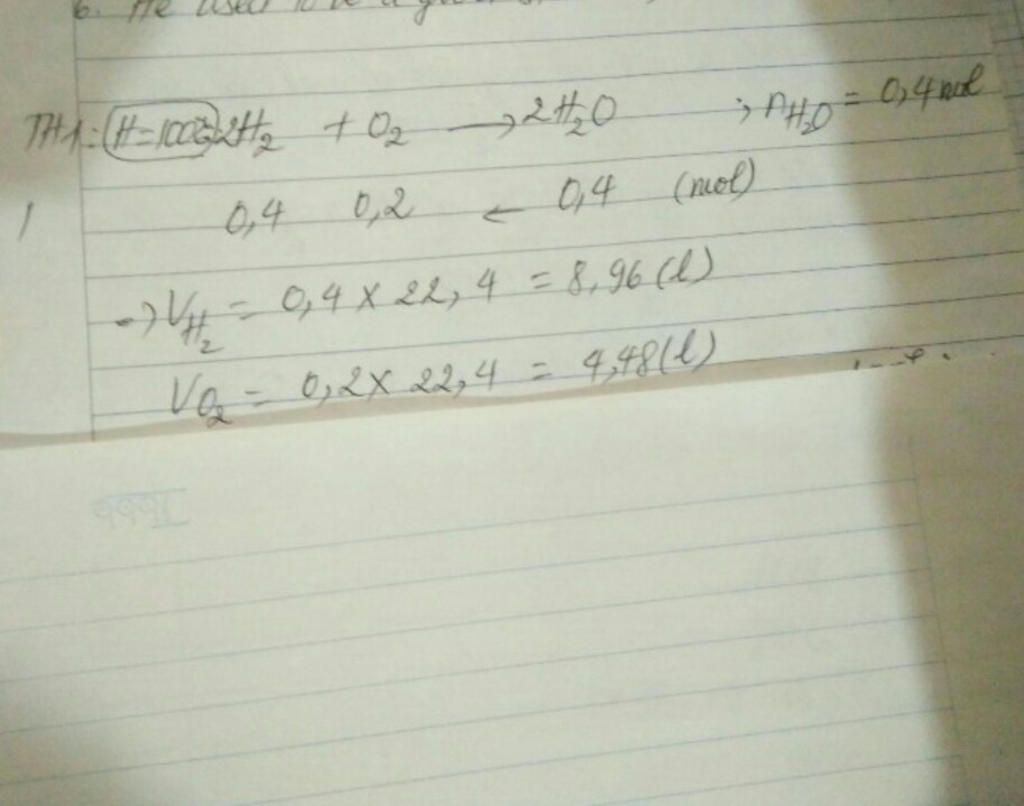 6. He used to be a
TH1: H=100% 2H₂ + O₂ → 2H₂O ; nH₂O = 0,4 mol
0,4 0,2 ← 0,4 (mol)
→ VH₂ = 0,4 x 22,4 = 8,96 (l)
VO₂ = 0,2 x 22,4 = 4,48 (l)